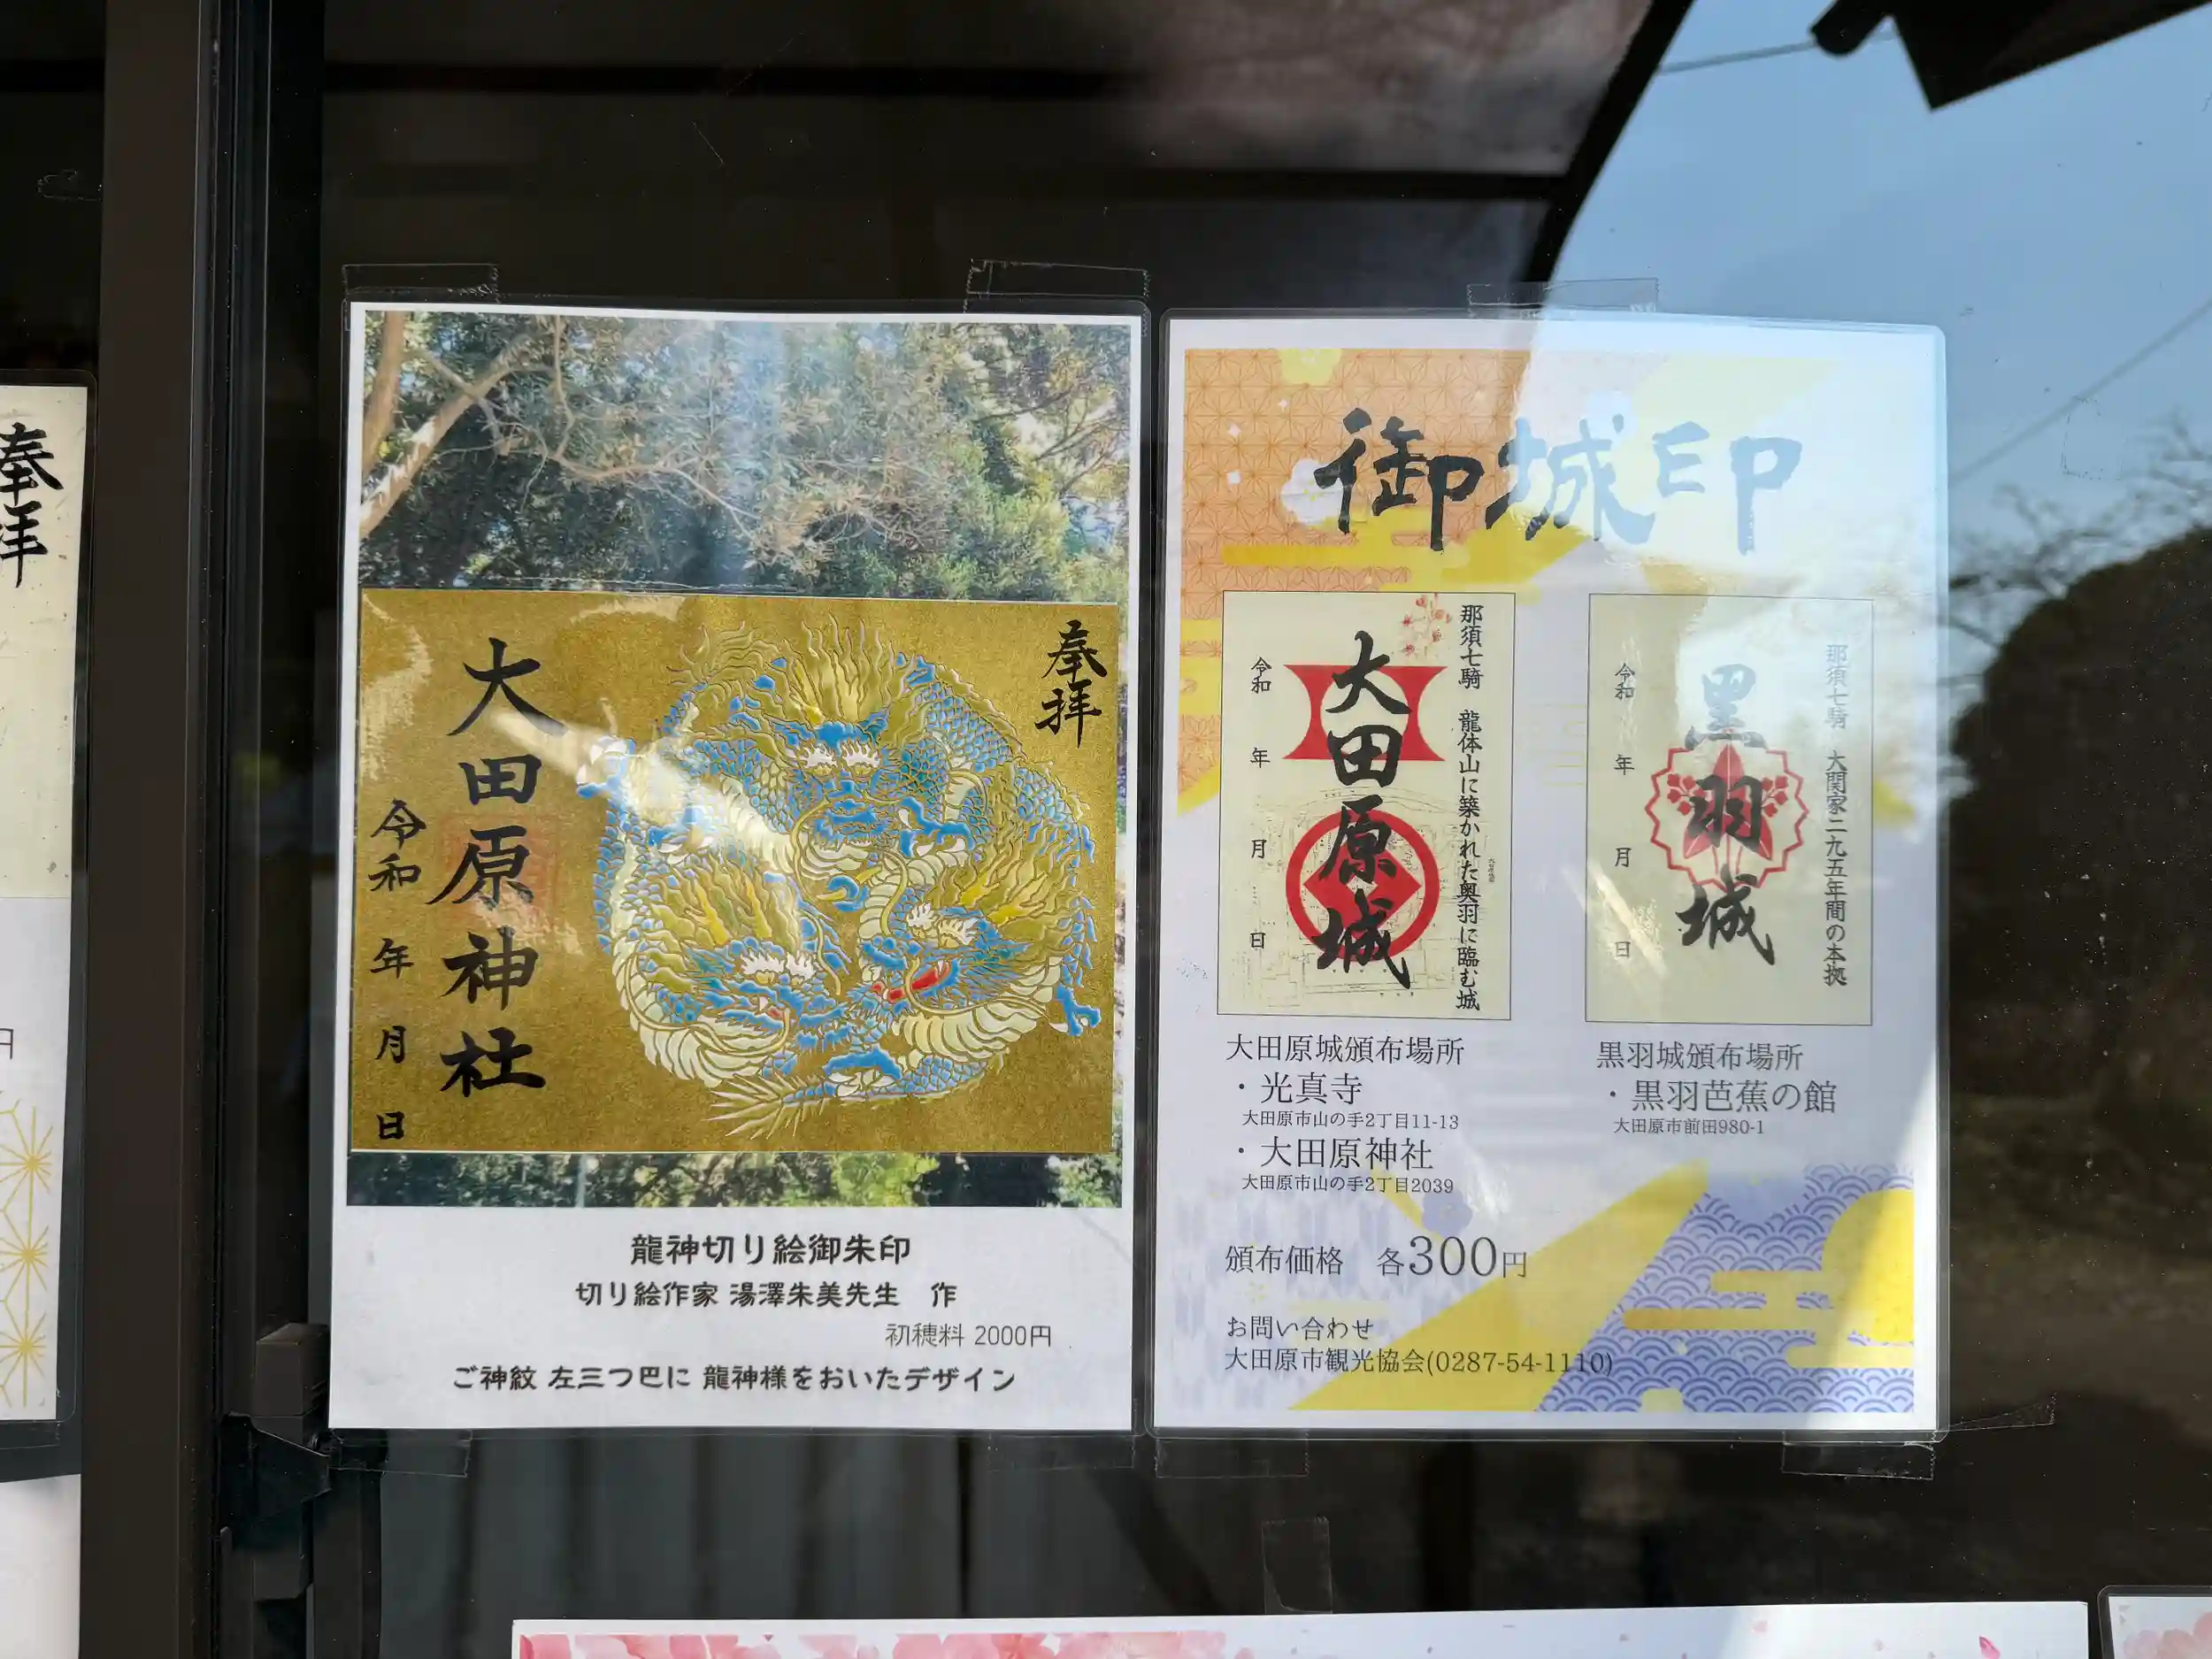 奉拝
円
奉拝
大田原神社
令和 年 月 日
龍神切り絵御朱印
切り絵作家 湯澤朱美先生 作
初穂料 2000円
ご神紋 左三つ巴に 龍神様をおいたデザイン
御城印
那須七騎 龍体山に築かれた奥羽に臨む城
大田原城
令和 年 月 日
那須七騎 大関家二九五年間の本拠
黒羽城
令和 年 月 日
大田原城頒布場所
・光真寺
大田原市山の手2丁目11-13
・大田原神社
大田原市山の手2丁目2039
黒羽城頒布場所
・黒羽芭蕉の館
大田原市前田980-1
頒布価格 各300円
お問い合わせ
大田原市観光協会(0287-54-1110)